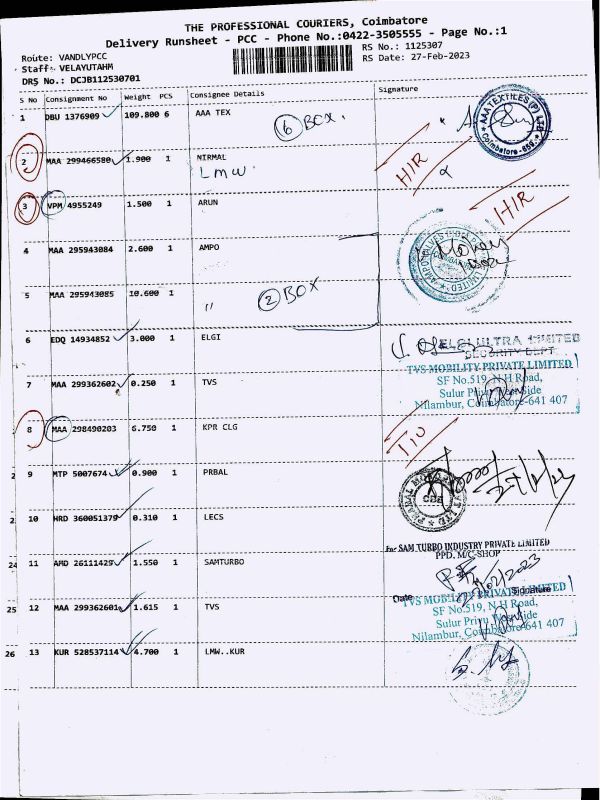 THE PROFESSIONAL COURIERS, Coimbatore
Delivery Runsheet - PCC - Phone No.:0422-3505555 - Page No.:1
Route: VANDLYPCC
Staff: VELAYUTAHM
DRS No.: DCJB112530701
RS No.: 1125307
RS Date: 27-Feb-2023
S No Consignment No Weight PCS Consignee Details Signature
1 DBU 1376909 109.800 6 AAA TEX
6 BOX.
AAA TEXTILES (P) LTD
Coimbatore-659.
2 MAA 299466580 1.900 1 NIRMAL
LMW
H/R
3 VPM 4955249 1.500 1 ARUN
H/R
4 MAA 295943084 2.600 1 AMPO
5 MAA 295943085 10.600 1 〃
2 BOX
6 EDQ 14934852 3.000 1 ELGI
ELGI ULTRA LIMITED
SECURITY DEPT.
7 MAA 299362602 0.250 1 TVS
TVS MOBILITY PRIVATE LIMITED
SF No.519, N H Road,
Nilambur, Coimbatore-641 407
8 MAA 298490203 6.750 1 KPR CLG
2 9 MTP 5007674 0.900 1 PRBAL
CBE
2 10 HRD 360051379 0.310 1 LECS
For SAM TURBO INDUSTRY PRIVATE LIMITED
PPD, M/C-SHOP
24 11 AMD 26111429 1.550 1 SAMTURBO
Date Signature
25 12 MAA 299362601 1.615 1 TVS
TVS MOBILITY PRIVATE LIMITED
SF No.519, N H Road,
Nilambur, Coimbatore-641 407
26 13 KUR 528537114 4.700 1 LMW..KUR